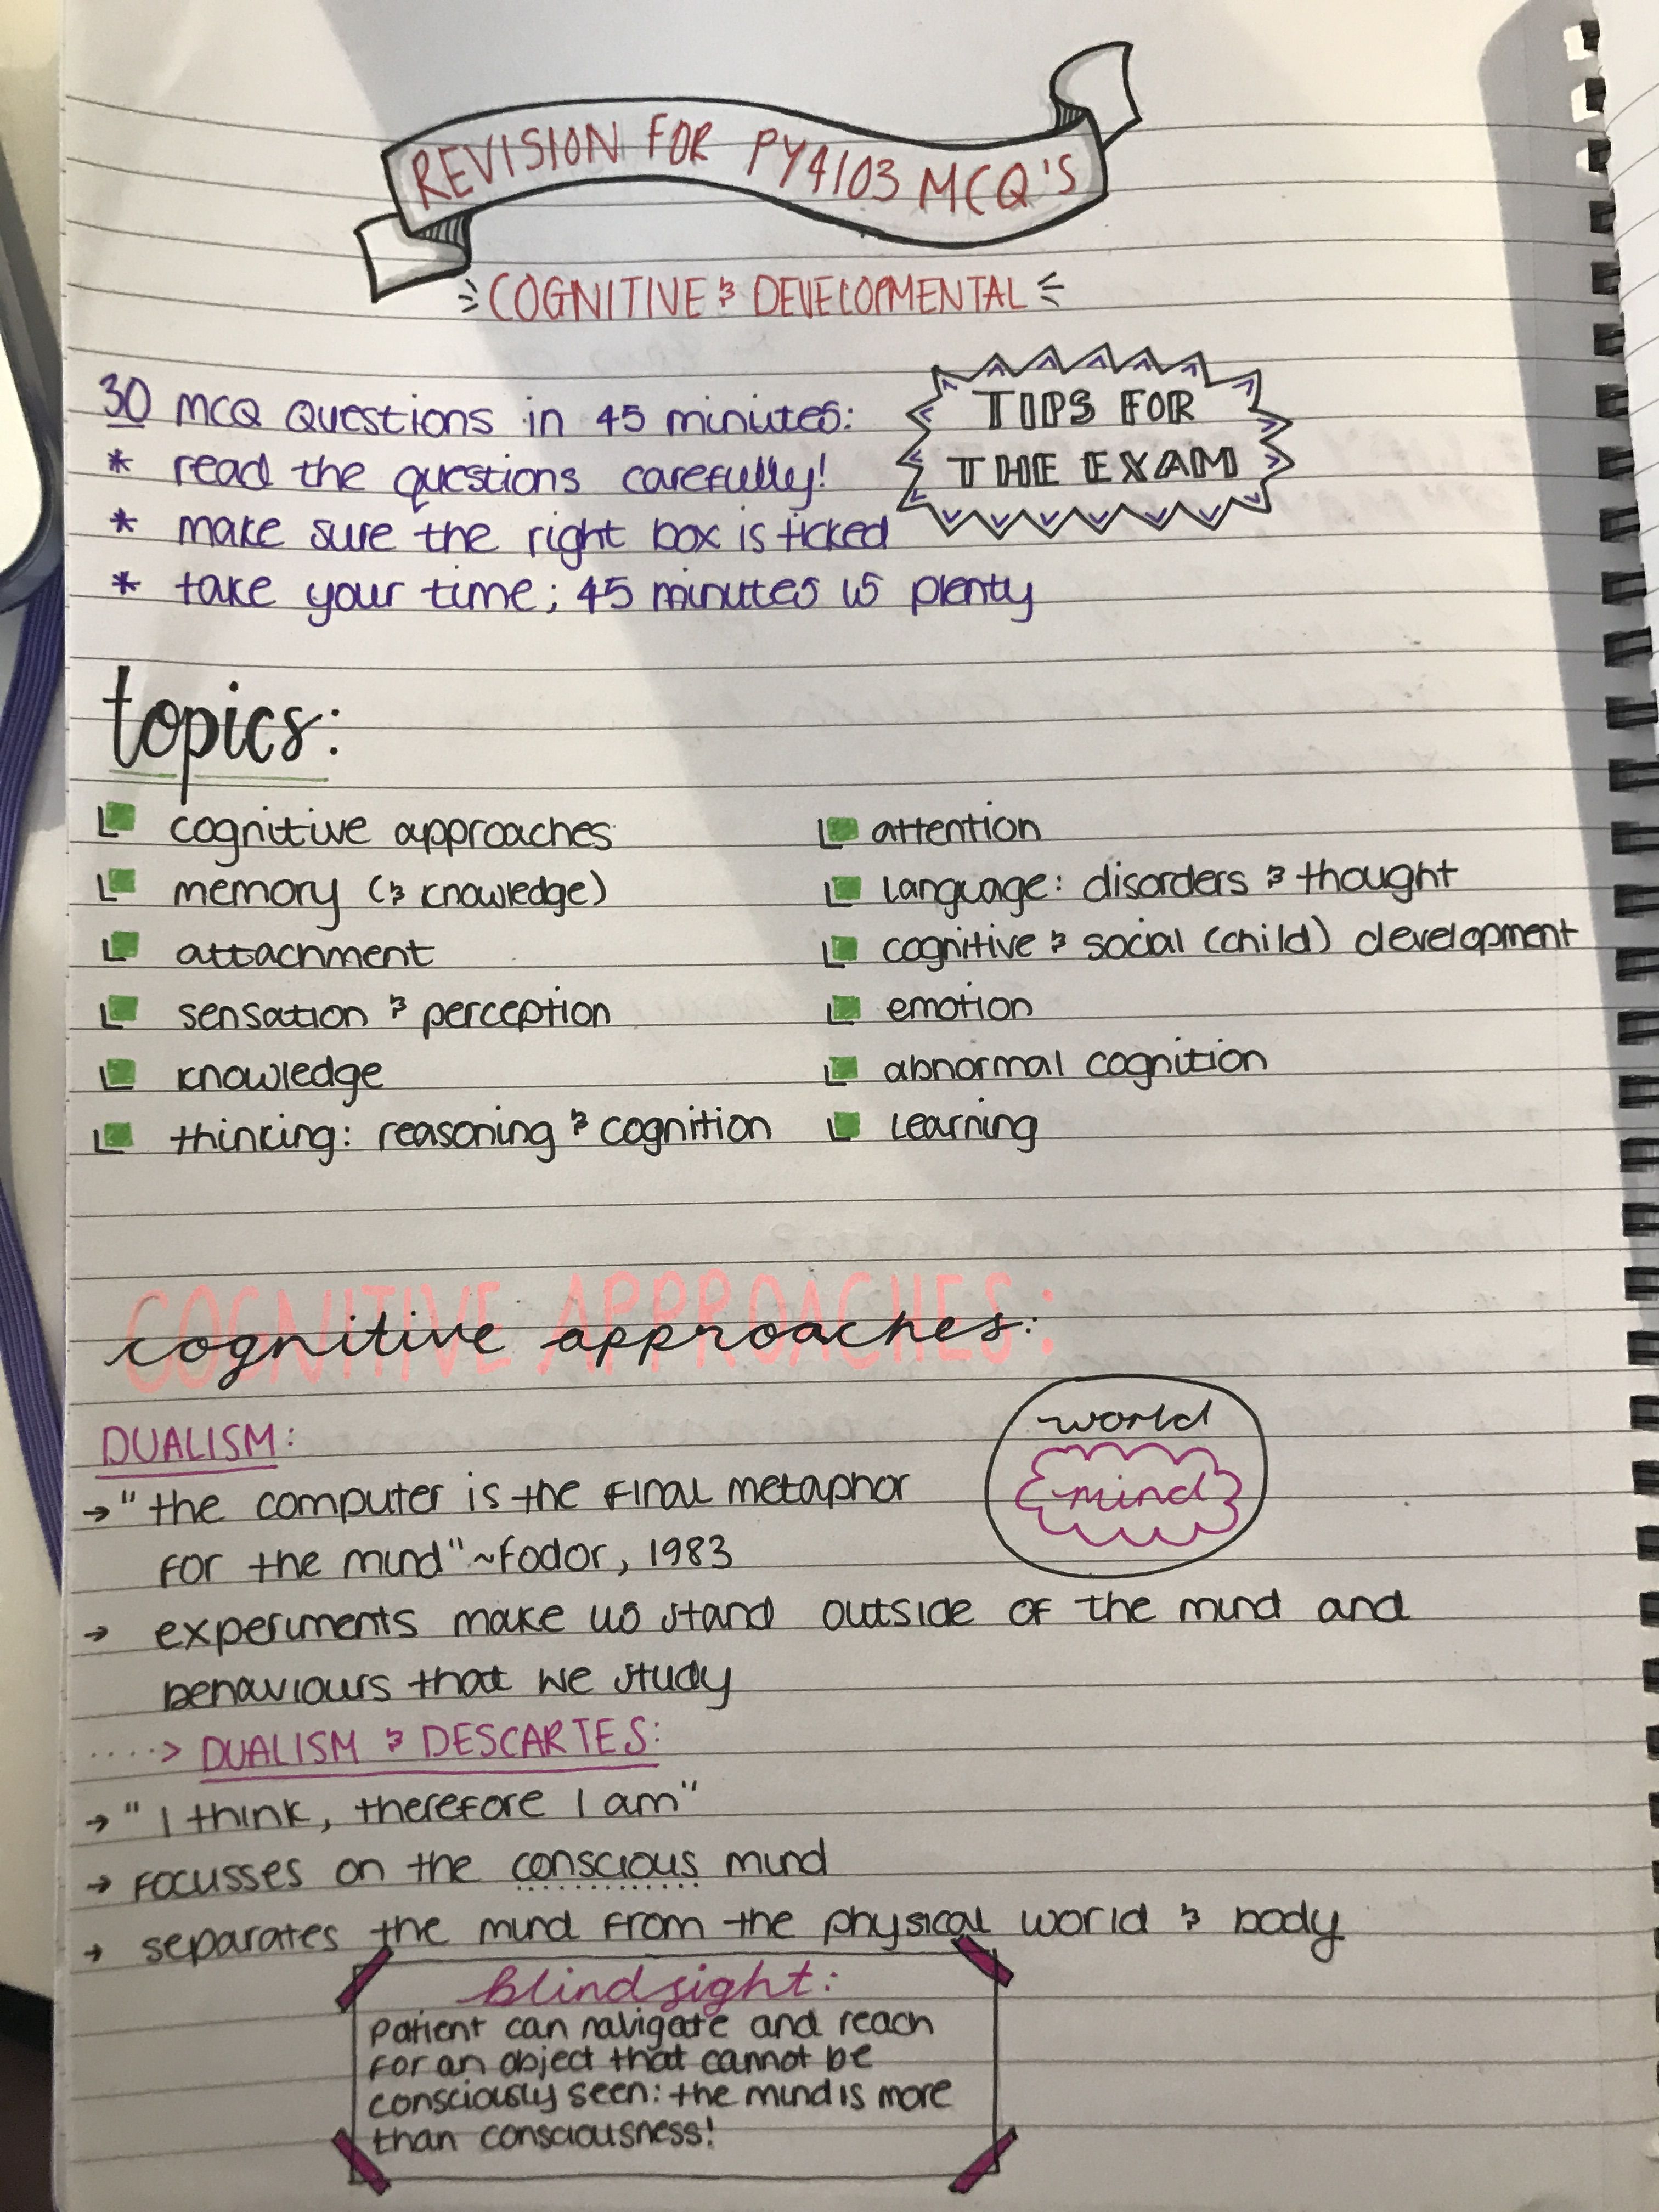 REVISION FOR PY4103 MCQ'S
COGNITIVE & DEVELOPMENTAL
TIPS FOR
THE EXAM
30 MCQ Questions in 45 minutes:
* read the questions carefully!
* make sure the right box is ticked
* take your time; 45 minutes is plenty
topics:
cognitive approaches
memory (& knowledge)
attachment
sensation & perception
knowledge
thinking: reasoning & cognition
attention
language: disorders & thought
cognitive & social (child) development
emotion
abnormal cognition
learning
COGNITIVE APPROACHES:
cognitive approaches:
DUALISM:
world
mind
→ "the computer is the final metaphor
for the mind" ~Fodor, 1983
→ experiments make us stand outside of the mind and
behaviours that we study
····> DUALISM & DESCARTES:
→ "I think, therefore I am"
→ focusses on the conscious mind
→ separates the mind from the physical world & body
blindsight:
Patient can navigate and reach
for an object that cannot be
consciously seen: the mind is more
than consciousness!